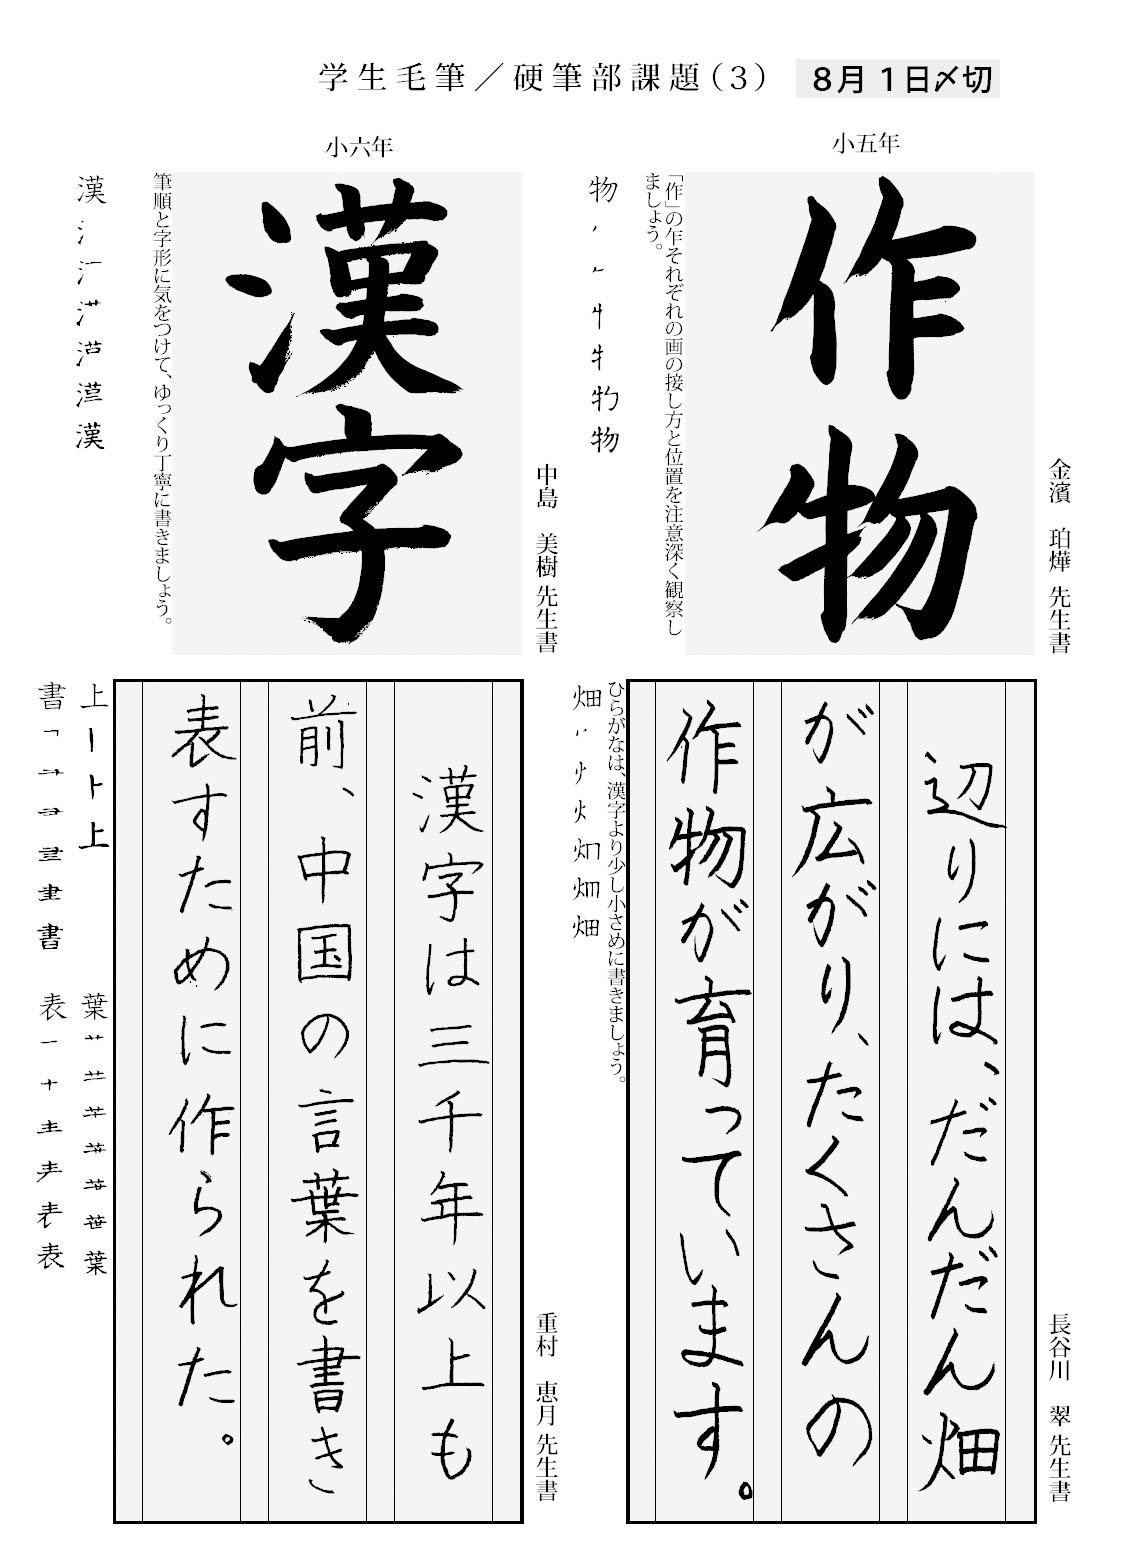 学生毛筆／硬筆部課題（3）
8月1日〆切
小五年
作物
金濱 珀燁 先生書
「作」の乍それぞれの画の接し方と位置を注意深く観察し
ましょう。
物 丿 𠂉 牛 牜 物
小六年
漢字
中島 美樹 先生書
筆順と字形に気をつけて、ゆっくり丁寧に書きましょう。
漢 氵 漢
辺りには、だんだん畑
が広がり、たくさんの
作物が育っています。
長谷川 翠 先生書
ひらがなは、漢字より少し小さめに書きましょう。
畑 火 畑
漢字は三千年以上も
前、中国の言葉を書き
表すために作られた。
重村 恵月 先生書
上 丨 ⺊ 上
葉 葉
書 書
表 一 十 表